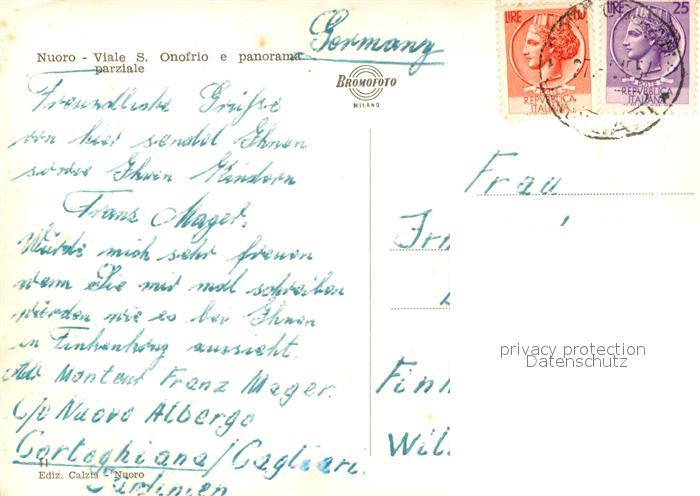 Germany
Nuoro - Viale S. Onofrio e panorama
parziale
BROMOFOTO
MILANO
LIRE
LIRE 25
POSTE
REPVBBLICA
ITALIANA
REPVBBLICA
ITALIANA
Freundliche Grüße
von hier sendet Ihnen
sowie Ihren Kindern
Franz Mager.
Würde mich sehr freuen
wenn Sie mir mal schreiben
würden wie es bei Ihnen
in aussieht.
Adr Monteur Franz Mager.
C/o Nuovo Albergo
Carteghiana/Cagliari.
Sardinien
Frau
privacy protection
Datenschutz
11
Ediz. Calzia - Nuoro